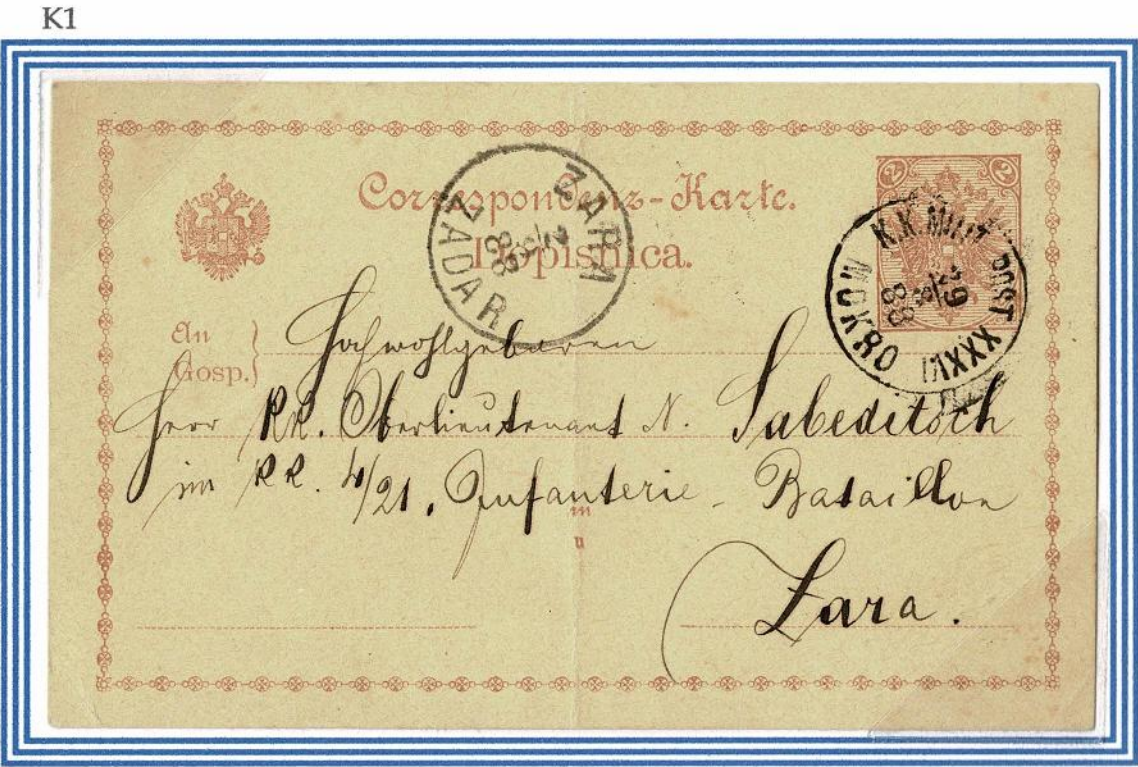 K1
Correspondenz-Karte.
Dopisnica.
2 2
ZARA
2/9
88
ZADAR
K.K. MILIT. POST XXXVI
29/8
88
MOKRO
An
Gosp.
Hochwohlgeboren
Herr KK. Oberlieutenant N. Sabeditsch
im KK. 4/21. Infanterie-Bataillon
in
u
Zara.